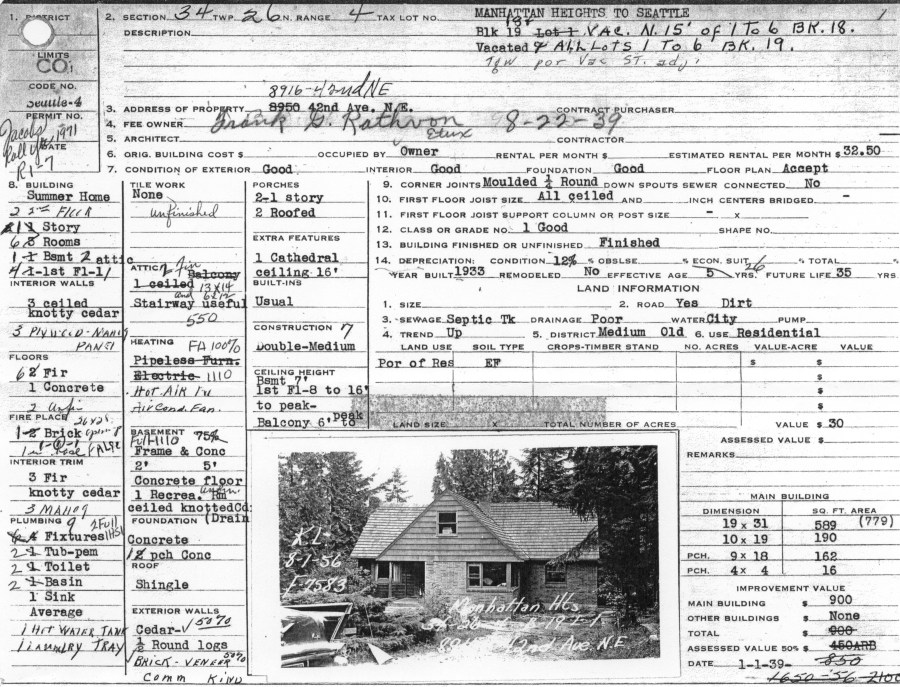 MANHATTAN HEIGHTS TO SEATTLE
1. DISTRICT
2. SECTION 34 TWP. 26 N. RANGE 4 TAX LOT NO.
Blk 19 Lot 1 VAC. N. 15' of 1 To 6 BK. 18.
DESCRIPTION
Vacated & All Lots 1 To 6 BK. 19.
Tgw por Vac ST. adj.
LIMITS
CO.
CODE NO.
Seattle-4
PERMIT NO.
8916-42nd NE
3. ADDRESS OF PROPERTY 8950 42nd Ave. N.E. CONTRACT PURCHASER
4. FEE OWNER Frank G. Rathvon Etux 8-22-39
5. ARCHITECT CONTRACTOR
DATE
Roll Yr. 1971
R1-7
6. ORIG. BUILDING COST $ OCCUPIED BY Owner RENTAL PER MONTH $ ESTIMATED RENTAL PER MONTH $ 32.50
7. CONDITION OF EXTERIOR Good INTERIOR Good FOUNDATION Good FLOOR PLAN Accept
8. BUILDING
Summer Home
1 Story
6 Rooms
Bsmt 2 attic
1-1st Fl-1
INTERIOR WALLS
3 ceiled
knotty cedar
3 PLYWOOD-MAHOG
PANEL
FLOORS
6 2 Fir
1 Concrete
2 Unfin
FIRE PLACE 26x28
Brick
INTERIOR TRIM
3 Fir
knotty cedar
3 MAHOG
PLUMBING 9 2 Full
Fixtures
2 1 Tub-pem
2 1 Toilet
2 1 Basin
1 Sink
Average
1 HOT WATER TANK
1 LAUNDRY TRAY
TILE WORK
None
unfinished
ATTIC 2 Fin
Balcony
1 ceiled 13x14
and 6x12
Stairway useful
550
HEATING FA 100%
Pipeless Furn.
Electric 1110
Hot Air Fu
Air Cond. Fan.
BASEMENT 75%
Full-1110
Frame & Conc
2' 5'
Concrete floor
1 Recrea. Rm unfin
ceiled knotted Cd
FOUNDATION (Drain
Concrete
pch Conc
ROOF
Shingle
EXTERIOR WALLS
Cedar-V 50%
½ Round logs
BRICK-VENEER 50%
Comm KIND
PORCHES
2-1 story
2 Roofed
EXTRA FEATURES
1 Cathedral
ceiling 16'
BUILT-INS
Usual
CONSTRUCTION 7
Double-Medium
CEILING HEIGHT
Bsmt 7'
1st Fl-8 to 16'
to peak-
Balcony 6' to peak
9. CORNER JOINTS Moulded ¼ Round DOWN SPOUTS SEWER CONNECTED. No
10. FIRST FLOOR JOIST SIZE All ceiled AND INCH CENTERS BRIDGED. -
11. FIRST FLOOR JOIST SUPPORT COLUMN OR POST SIZE - x
12. CLASS OR GRADE NO. 1 Good SHAPE NO.
13. BUILDING FINISHED OR UNFINISHED Finished
14. DEPRECIATION: CONDITION 12% % OBSLSE. % ECON. SUIT % TOTAL %
YEAR BUILT 1933 REMODELED No EFFECTIVE AGE 5 YRS. FUTURE LIFE 35 YRS
26
LAND INFORMATION
1. SIZE 2. ROAD Yes Dirt
3. SEWAGE Septic Tk DRAINAGE Poor WATER City PUMP
4. TREND Up 5. DISTRICT Medium Old 6. USE Residential
LAND USE SOIL TYPE CROPS-TIMBER STAND NO. ACRES VALUE-ACRE VALUE
Por of Res EF $ $
LAND SIZE X TOTAL NUMBER OF ACRES VALUE $ 30
ASSESSED VALUE $
REMARKS
K1-
8-7-56
F-7583
Manhattan Hts
42nd Ave. N.E
MAIN BUILDING
DIMENSION SQ. FT. AREA
19 x 31 589 (779)
10 x 19 190
PCH. 9 x 18 162
PCH. 4 x 4 16
IMPROVEMENT VALUE
MAIN BUILDING $ 900
OTHER BUILDINGS $ None
TOTAL $ 900
ASSESSED VALUE 50% $ 450ARB
DATE 1-1-39- 850
1650-56-2100